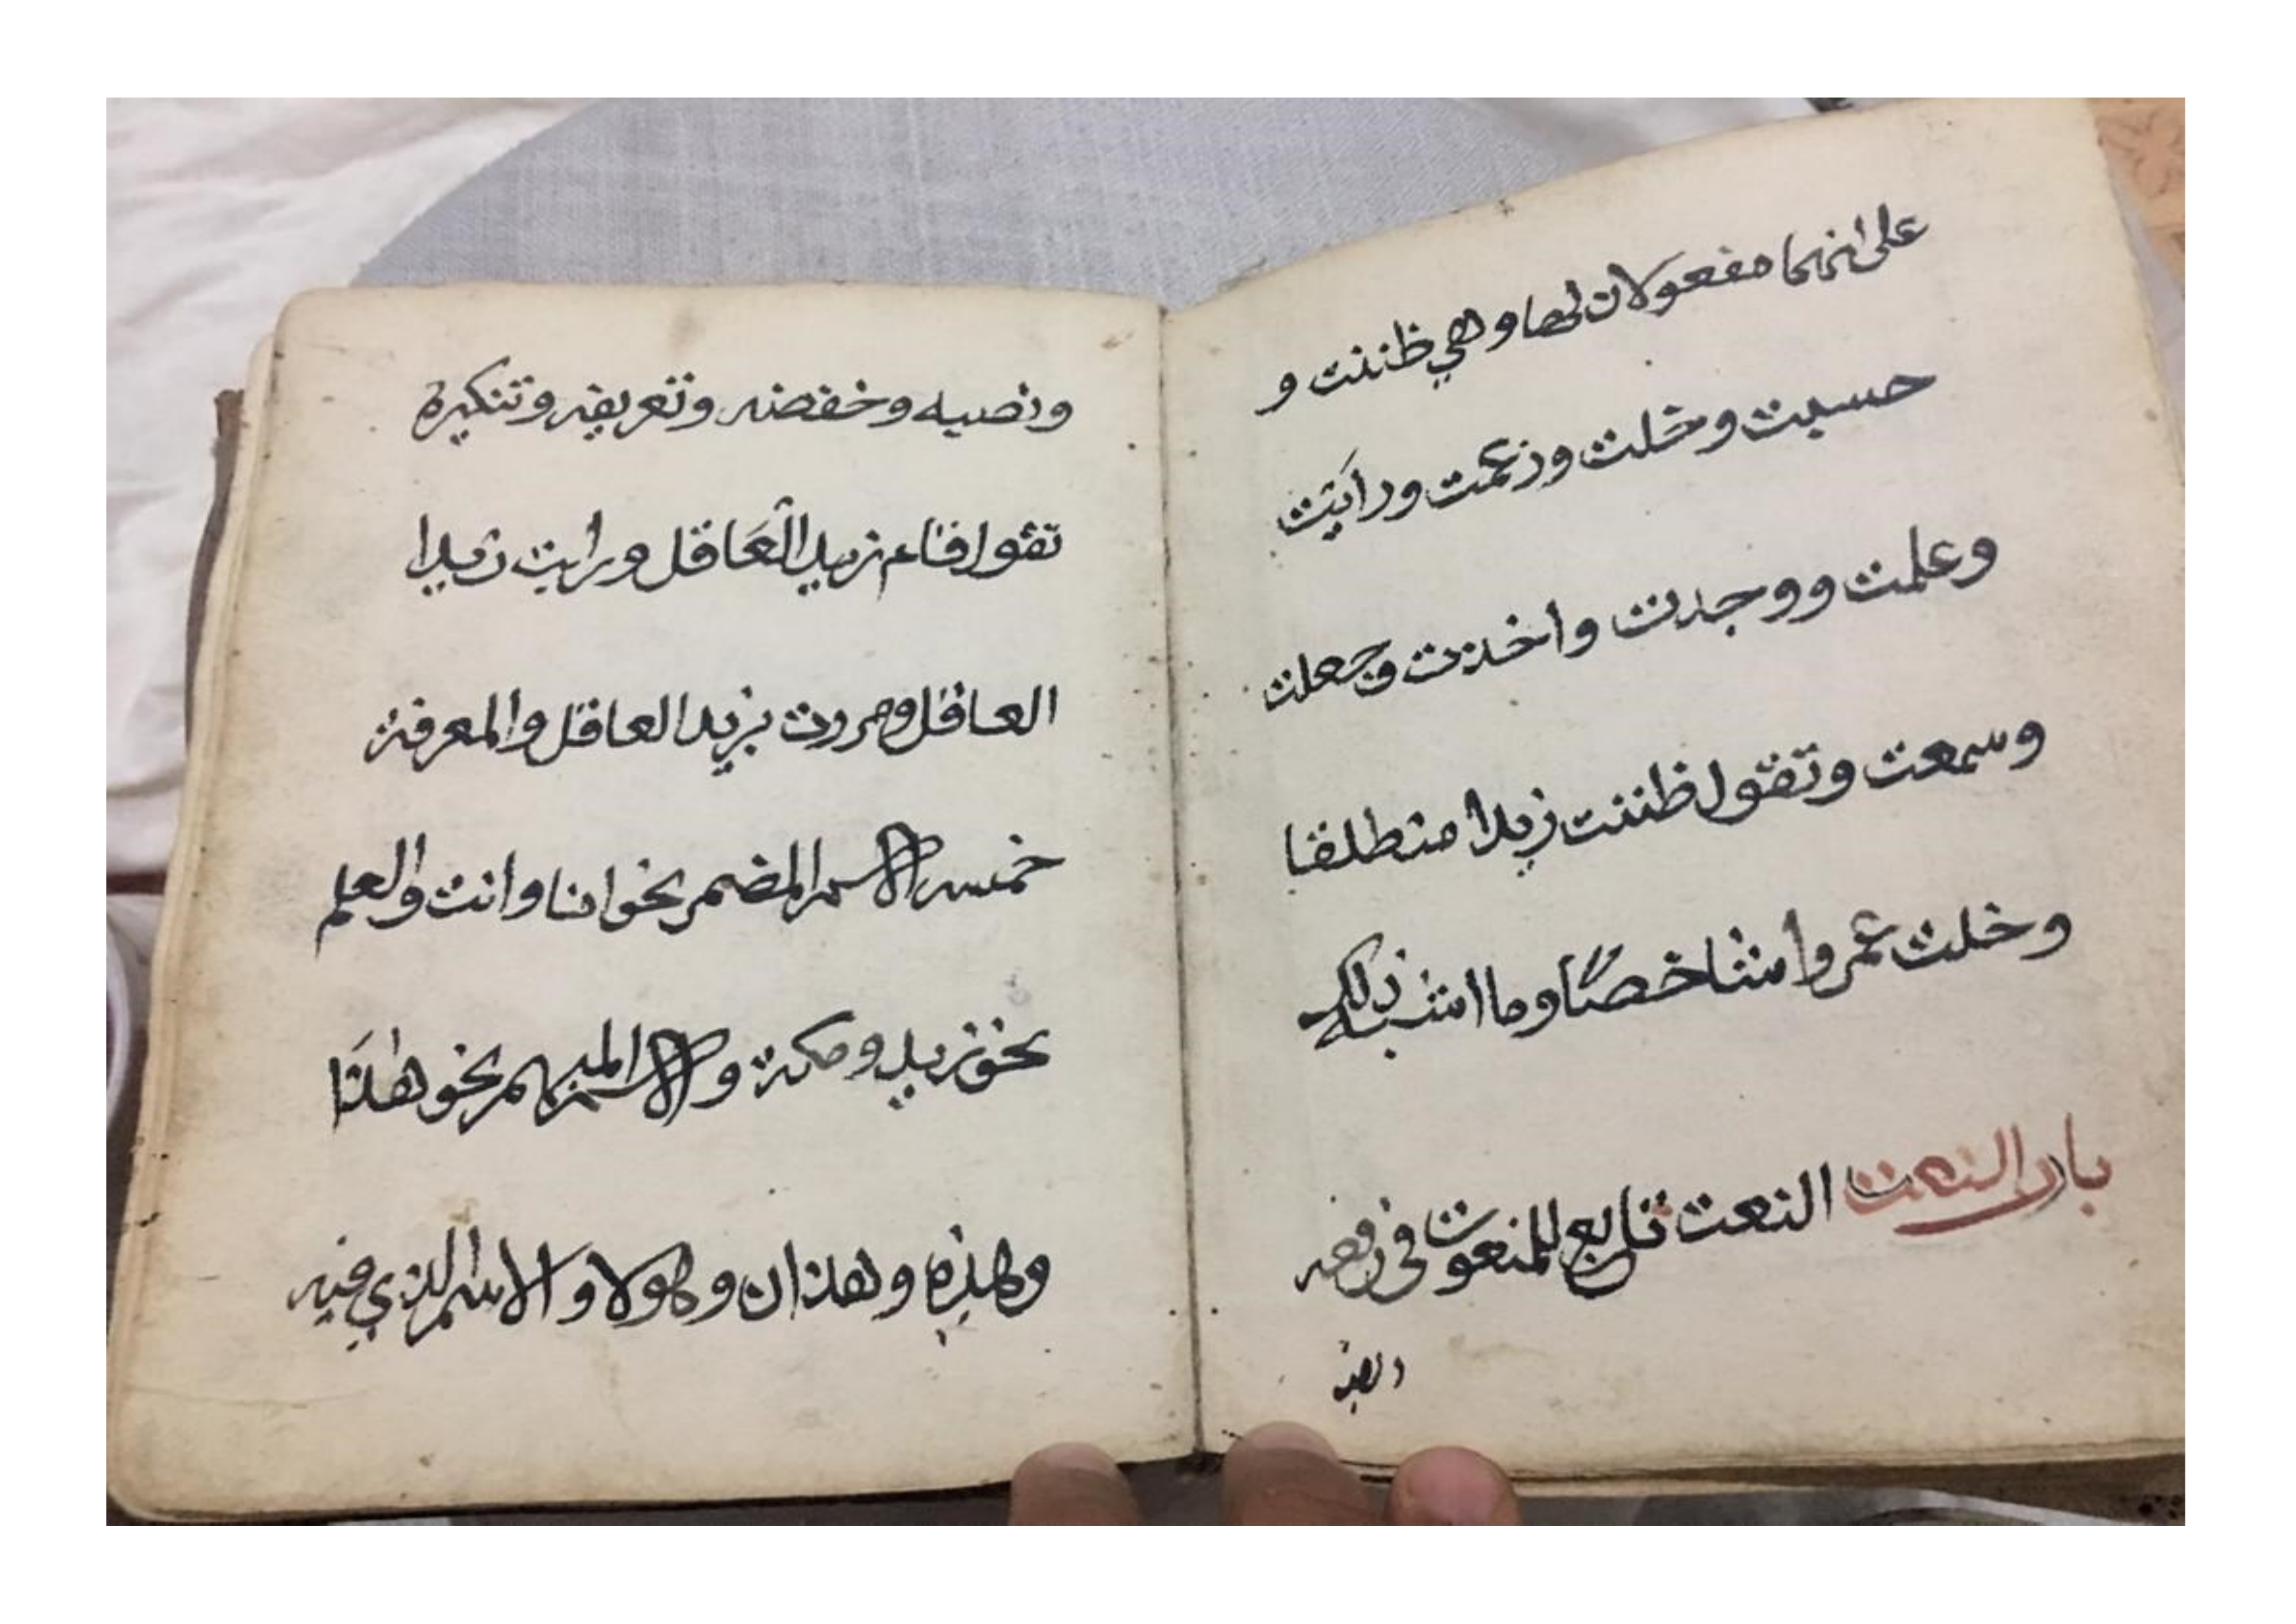 على انهما مفعولان لها وهي ظننت و
حسبت وخلت وزعمت ورايت
وعلمت ووجدت واخذت وجعلت
وسمعت وتقول ظننت زيدا منطلقا
وخلت عمروا شاخصًا وما اشبه ذلك
باب النعت النعت تابع للمنعوت في رفعه
ونصبه وخفضه وتعريفه وتنكيره
تقول قام زيد الْعَاقل ورايت زيدا
العاقل ومررت بزيد العاقل والمعرفة
خمسة الاسم المضمر نحو انا وانت والعلم
نحو زيد ومكة والاسم المبهم نحو هذَا
وهذه وهذان وهولا والاسم الذي فيه